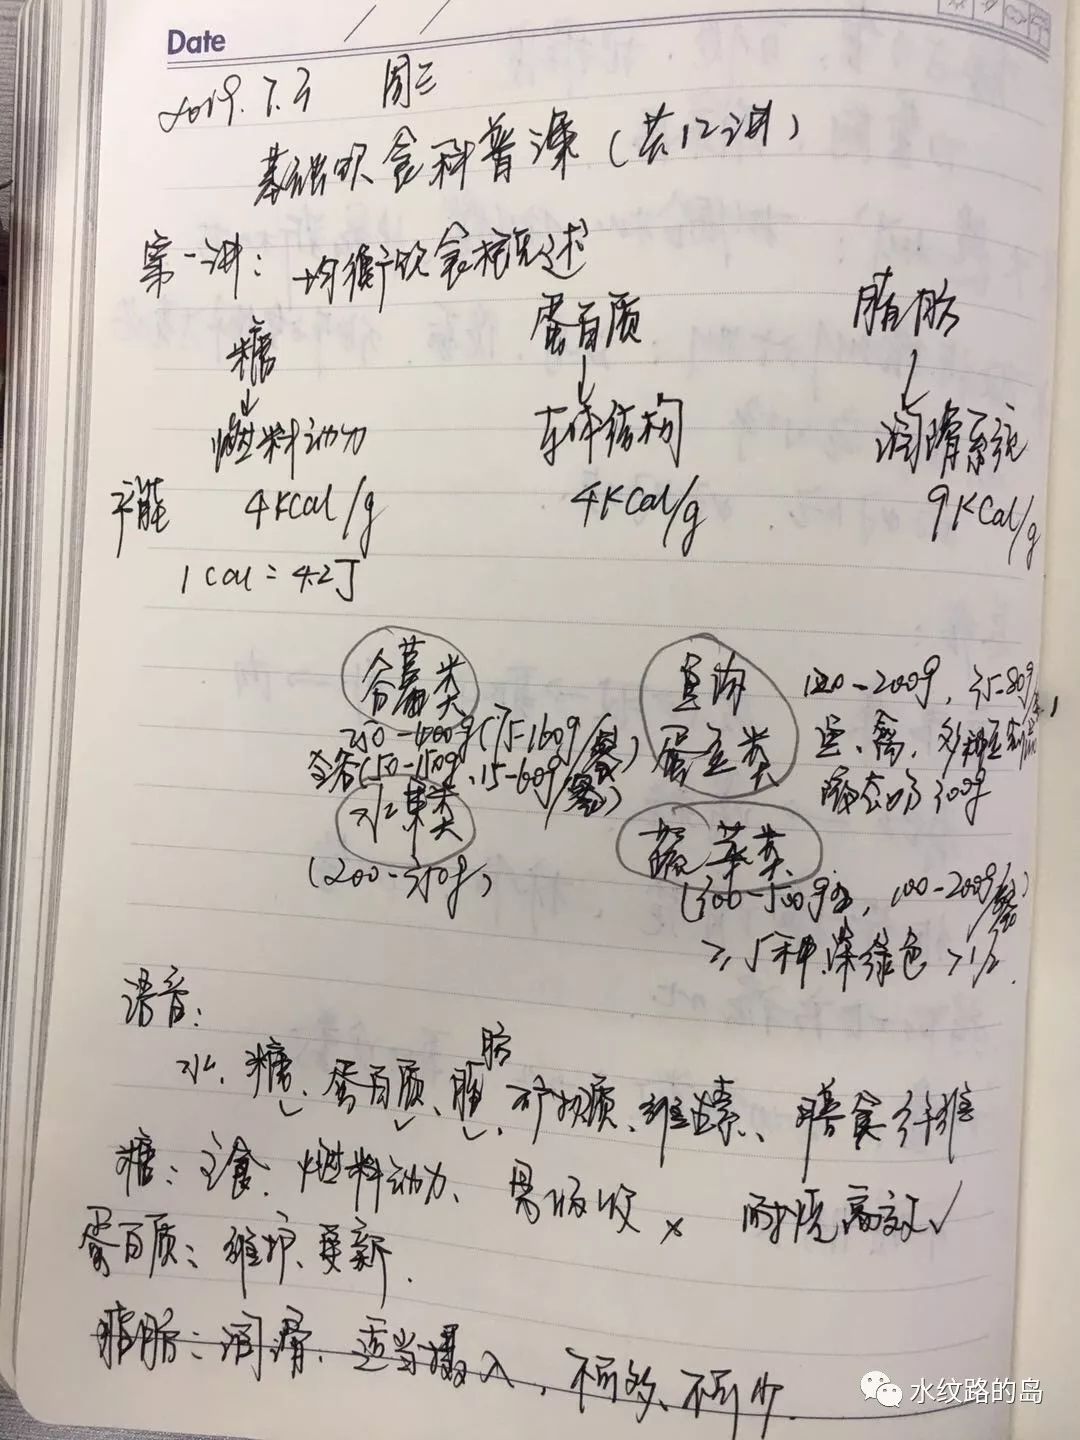 Date
2019.7.3 周三
基础饮食科普课（共12讲）
第一讲：均衡饮食概述
糖 蛋白质 脂肪
↓ ↓ ↓
燃料动力 车体结构 润滑系统
产能 4kcal/g 4kcal/g 9kcal/g
1cal=4.2J
谷薯类
250-400g(75-160g/餐)
全谷(50-150g、15-60g/餐)
水果类
(200-350g)
鱼肉
蛋豆类
120-200g，35-80g/餐
鱼、禽、
液态奶300g
蔬菜类
(300-500g，100-200g/餐)
≥5种深绿色>1/2
语音：
水、糖、蛋白质、脂肪、矿物质、维生素、膳食纤维
糖：主食、燃料动力、易吸收× 耐烧高效✓
蛋白质：维护、更新.
脂肪：润滑、适当摄入，不可多、不可少.
水纹路的岛